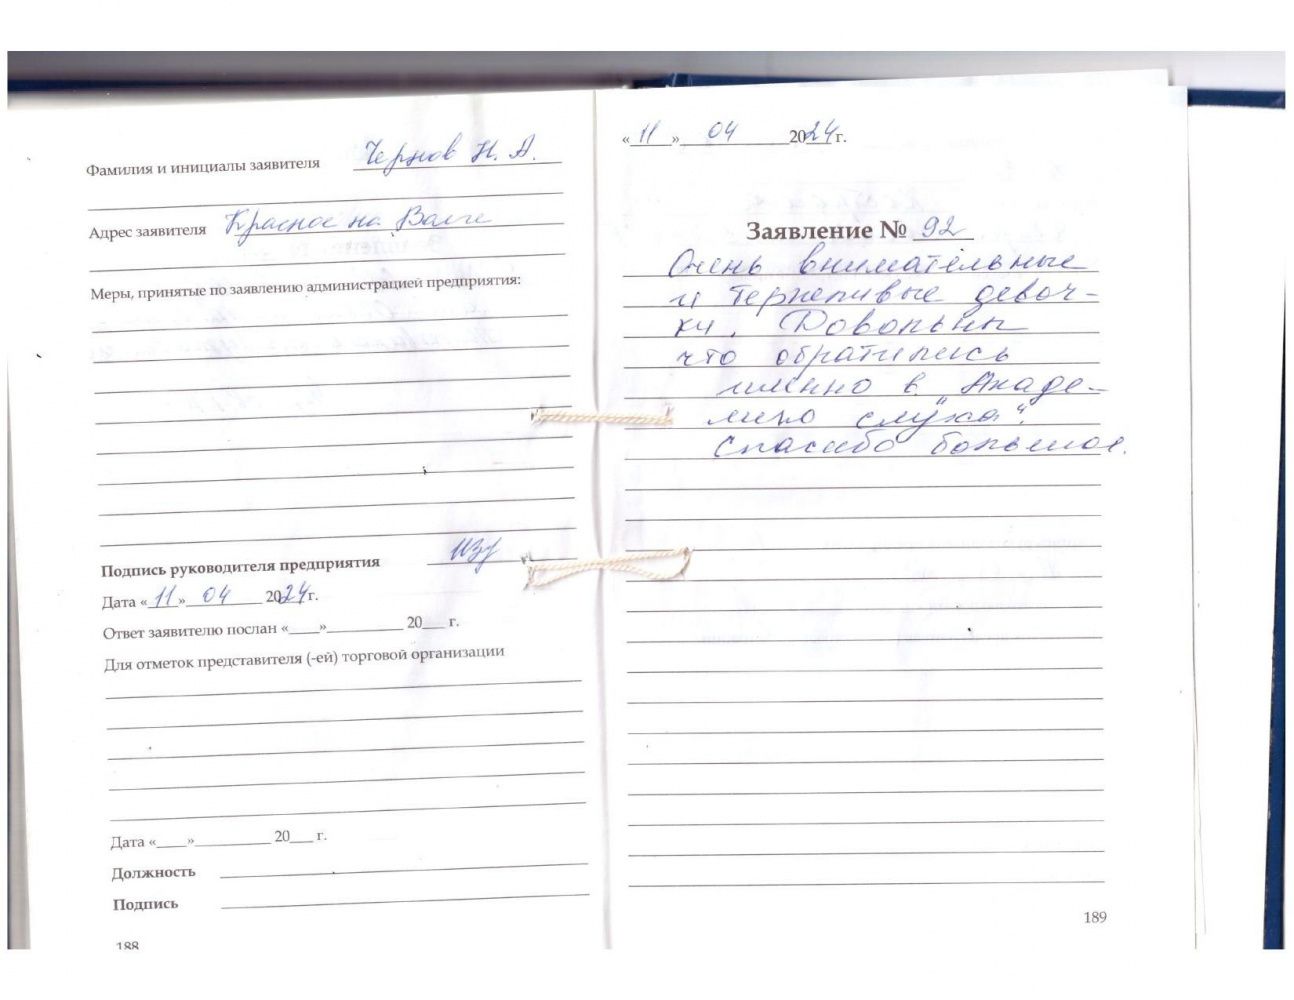 Фамилия и инициалы заявителя Чернов Н. А.
Адрес заявителя Красное на Волге
Меры, принятые по заявлению администрацией предприятия:
Подпись руководителя предприятия
Дата «11» 04 2024 г.
Ответ заявителю послан «____»__________ 20___ г.
Для отметок представителя (-ей) торговой организации
Дата «____»__________ 20___ г.
Должность
Подпись
188
«11» 04 2024 г.
Заявление № 92
Очень внимательные
и терпеливые девоч-
ки. Довольны
что обратились
именно в "Акаде-
мию слуха".
Спасибо большое.
189